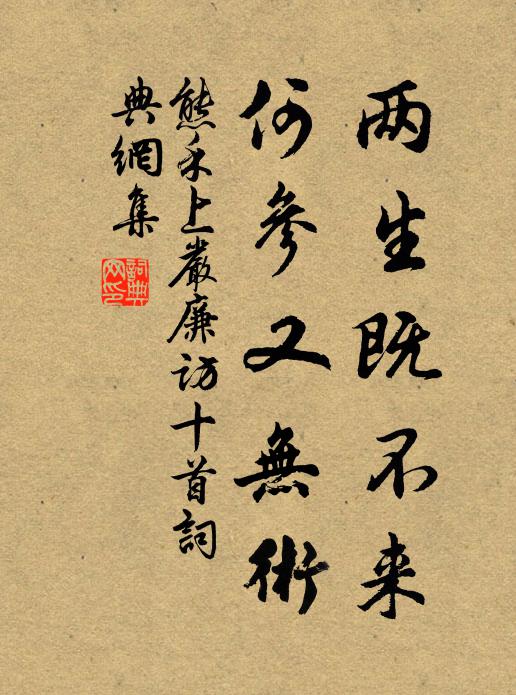 两生既不来
何参又無術
熊禾上嚴廉访十首詞
典網集
詞典
网印